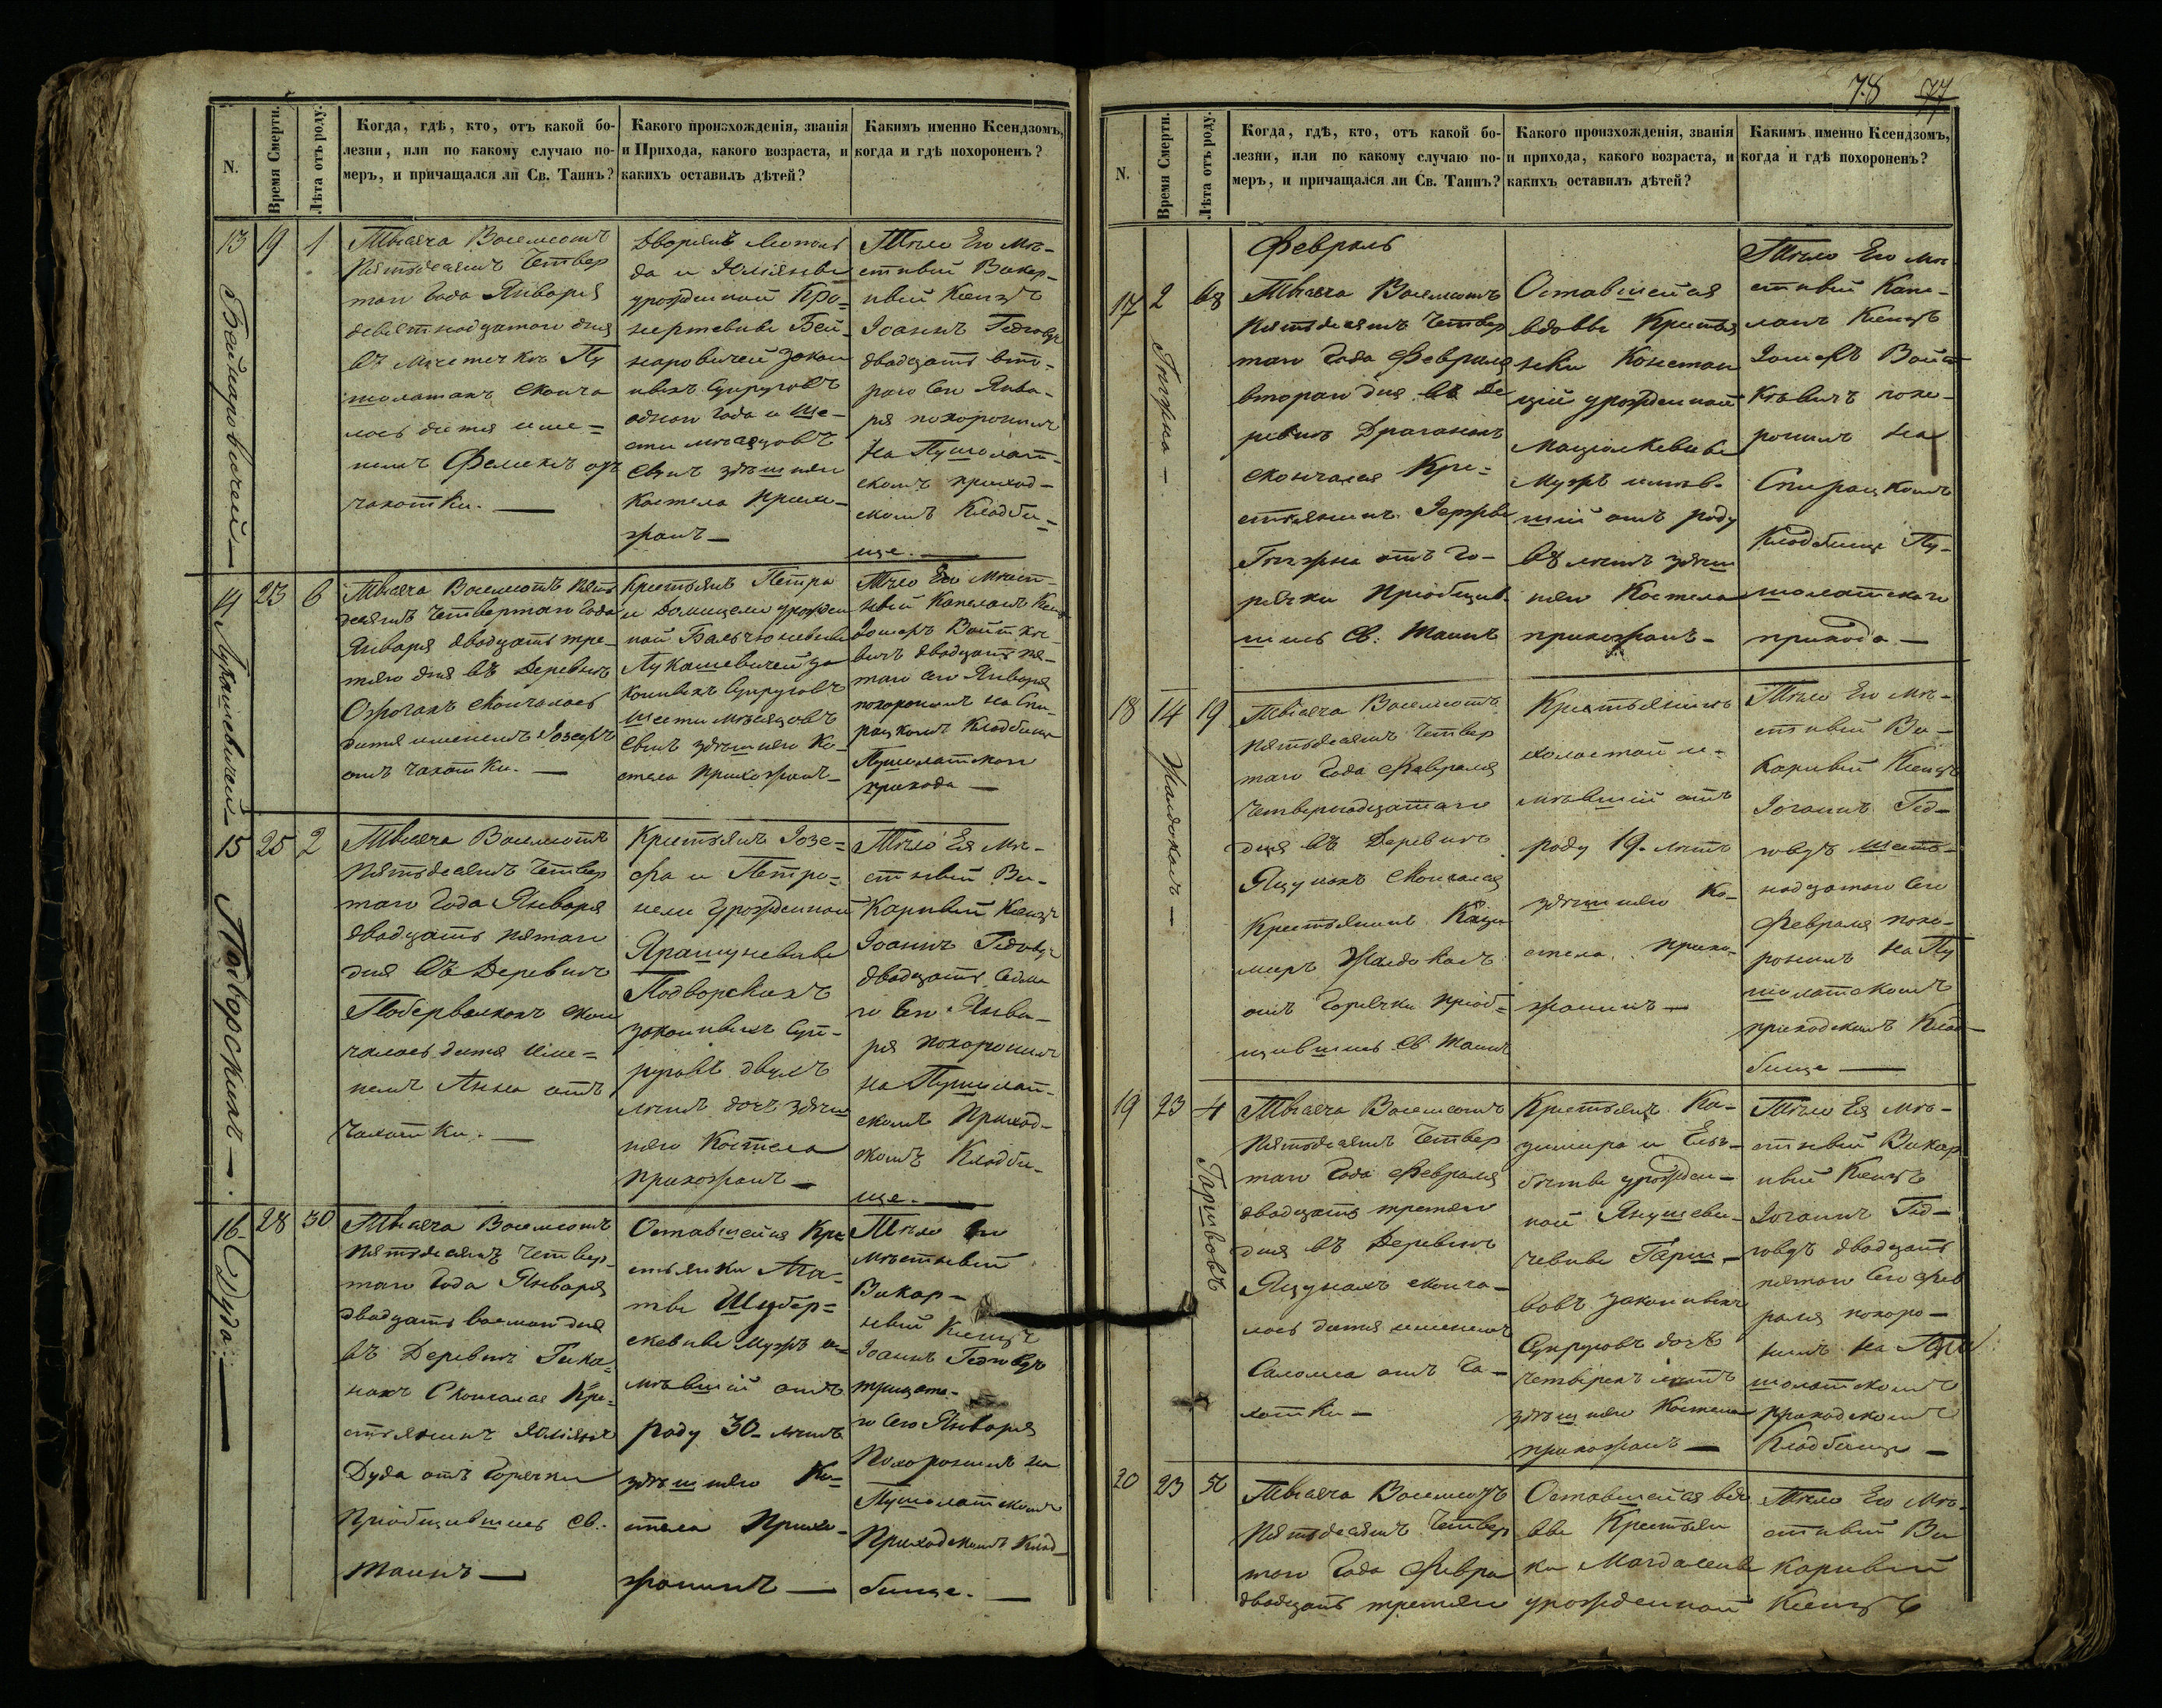 N.
Время Смерти.
Лѣта отъ роду.
Когда, гдѣ, кто, отъ какой бо-
лезни, или по какому случаю по-
меръ, и причащался ли Св. Таинъ?
Какого происхожденія, званія
и Прихода, какого возраста, и
какихъ оставилъ дѣтей?
Какимъ именно Ксендзомъ,
когда и гдѣ похороненъ?
13
19
1
Бейнаровичей
Тысяча Восемсотъ
Пятьдесятъ Четвер
таго Года Января
девятнадцатаго дня
въ мѣстечкѣ Пу
шолатахъ сконча
лось дитя име=
немъ Феликсъ отъ
чахотки.
Дворянъ Леополь
да и Юліянны
урожденной
Бей-
наровичей закон
ныхъ Супруговъ
одного Года и ше-
сти мѣсяцовъ
сынъ здѣшняго
Костела прихо-
жанъ
Тѣло Его мѣ-
стный Викар-
ный Ксендзъ
Іоаннъ Гедговдъ
двадцать вто-
раго сего Янва-
ря похоронилъ
На Пушолат-
скомъ приход-
скомъ Кладби-
ще.
14
23
6
Лукашевичей
Тысяча Восемсотъ Пять
десятъ Четвертаго Года
Января двадцать тре-
тяго дня въ Деревнѣ
Ожогахъ скончалось
дитя именемъ Іозефъ
отъ чахотки.
Крестьянъ Петра
и Домицели урожден
ной
Лукашевичей за
конныхъ Супруговъ
шести мѣсяцовъ
сынъ здѣшняго Ко-
стела прихожанъ
Тѣло Его мѣст-
ный Капеланъ Ксендзъ
Іозефъ Войтке-
вичъ двадцать пя-
таго сего Января
похоронилъ на Спи-
рацкомъ Кладбище
Пушолатскаго
прихода
15
25
2
Подворскихъ
Тысяча Восемсотъ
Пятьдесятъ Четвер
таго Года Января
двадцать пятаго
дня въ Деревнѣ
скон
чалось дитя име=
немъ Анна отъ
чахотки.
Крестьянъ Іозе=
фа и Петро-
нели урожденной
Ярашуневны
Подворскихъ
законныхъ Суп-
руговъ двухъ
лѣтъ дочь здѣш
няго Костела
прихожанъ
Тѣло Ея мѣ-
стный Ви-
карный Ксендзъ
Іоаннъ Гедговдъ
двадцать седма-
го сего Янва-
ря похоронилъ
на Пушолат-
скомъ Приход-
скомъ Кладби-
ще.
16
28
30
Дуда
Тысяча Восемсотъ
Пятьдесятъ Четвер-
таго Года Января
двадцать восмаго дня
въ Деревнѣ Гика-
нахъ Скончался Кре-
стьянинъ Юліянъ
Дуда отъ Горячки
Пріобщившись Св.
Таинъ
Оставшейся Кре
стьянки Ага-
ты
Мужъ и-
мѣвшій отъ
роду 30 лѣтъ
здѣшняго Ко-
стела Прихо-
жанинъ
Тѣло Его
мѣстный
Викар-
ный Ксендзъ
Іоаннъ Гедговдъ
тридцата-
го сего Января
Похоронилъ на
Пушолатскомъ
Приходскомъ Клад-
бище.
78 77
N.
Время Смерти.
Лѣта отъ роду.
Когда, гдѣ, кто, отъ какой бо-
лезни, или по какому случаю по-
меръ, и причащался ли Св. Таинъ?
Какого произхожденія, званія
и прихода, какого возраста, и
какихъ оставилъ дѣтей?
Какимъ именно Ксендзомъ,
когда и гдѣ похороненъ?
Февраль
17
2
68
Гигжна
Тысяча Восемсотъ
Пятьдесятъ Четвер
таго Года Февраля
втораго дня въ Де
ревнѣ Драганахъ
скончался Кре=
стьянинъ Іержы
Гигжна отъ Го-
рячки Пріобщив-
шись Св. Таинъ
Оставшейся
вдовы Крестья
нки Констан
ціи урожденной
Мужъ имѣв-
шій отъ роду
68 лѣтъ здѣш
няго Костела
прихожанъ
Тѣло Его мѣ-
стный Капе-
ланъ Ксендзъ
Іозефъ Войт
кевичъ похо-
ронилъ на
Спирацкомъ
Кладбище Пу-
шолатскаго
прихода
18
14
19
Жалдокасъ
Тысяча Восемсотъ
Пятьдесятъ Четвер
таго Года Февраля
Четвернадцатаго
дня въ Деревнѣ
Яцунахъ Скончался
Крестьянинъ Кази
миръ Жалдокасъ
отъ Горячки Пріоб=
щившись Св. Таинъ
Крестьянинъ
холостой и-
мѣвшій отъ
роду 19 лѣтъ
здѣшняго Ко-
стела прихо-
жанинъ
Тѣло Его мѣ-
стный Ви-
карный Ксендзъ
Іоаннъ Гед-
говдъ шест-
надцатаго сего
Февраля похо-
ронилъ на Пу
шолатскомъ
приходскомъ Клад-
бище
19
23
4
Гаршвовъ
Тысяча Восемсотъ
Пятьдесятъ Четвер
таго Года Февраля
двадцать третяго
дня въ Деревнѣ
Яцунахъ сконча-
лось дитя именемъ
Саломеа отъ ча-
хотки
Крестьянъ Ка-
зимира и Ельж-
беты урожден-
ной Янушеви-
чевны Гарш-
вовъ законныхъ
Супруговъ дочь
четырехъ лѣтъ
здѣшняго Костела
прихожанъ
Тѣло Ея мѣ-
стный Викар
ный Ксендзъ
Іоаннъ Гед-
говдъ двадцать
пятаго сего Фев
раля похоро-
нилъ на Пу
шолатскомъ
приходскомъ
Кладбище
20
23
56
Тысяча Восемсотъ
Пятьдесятъ Четвер
таго Года Февра
двадцать третяго
Оставшейся вдо
вы Крестьян
ки Магдалены
урожденной
Тѣло Его мѣ-
стный Ви
карный
Ксендзъ